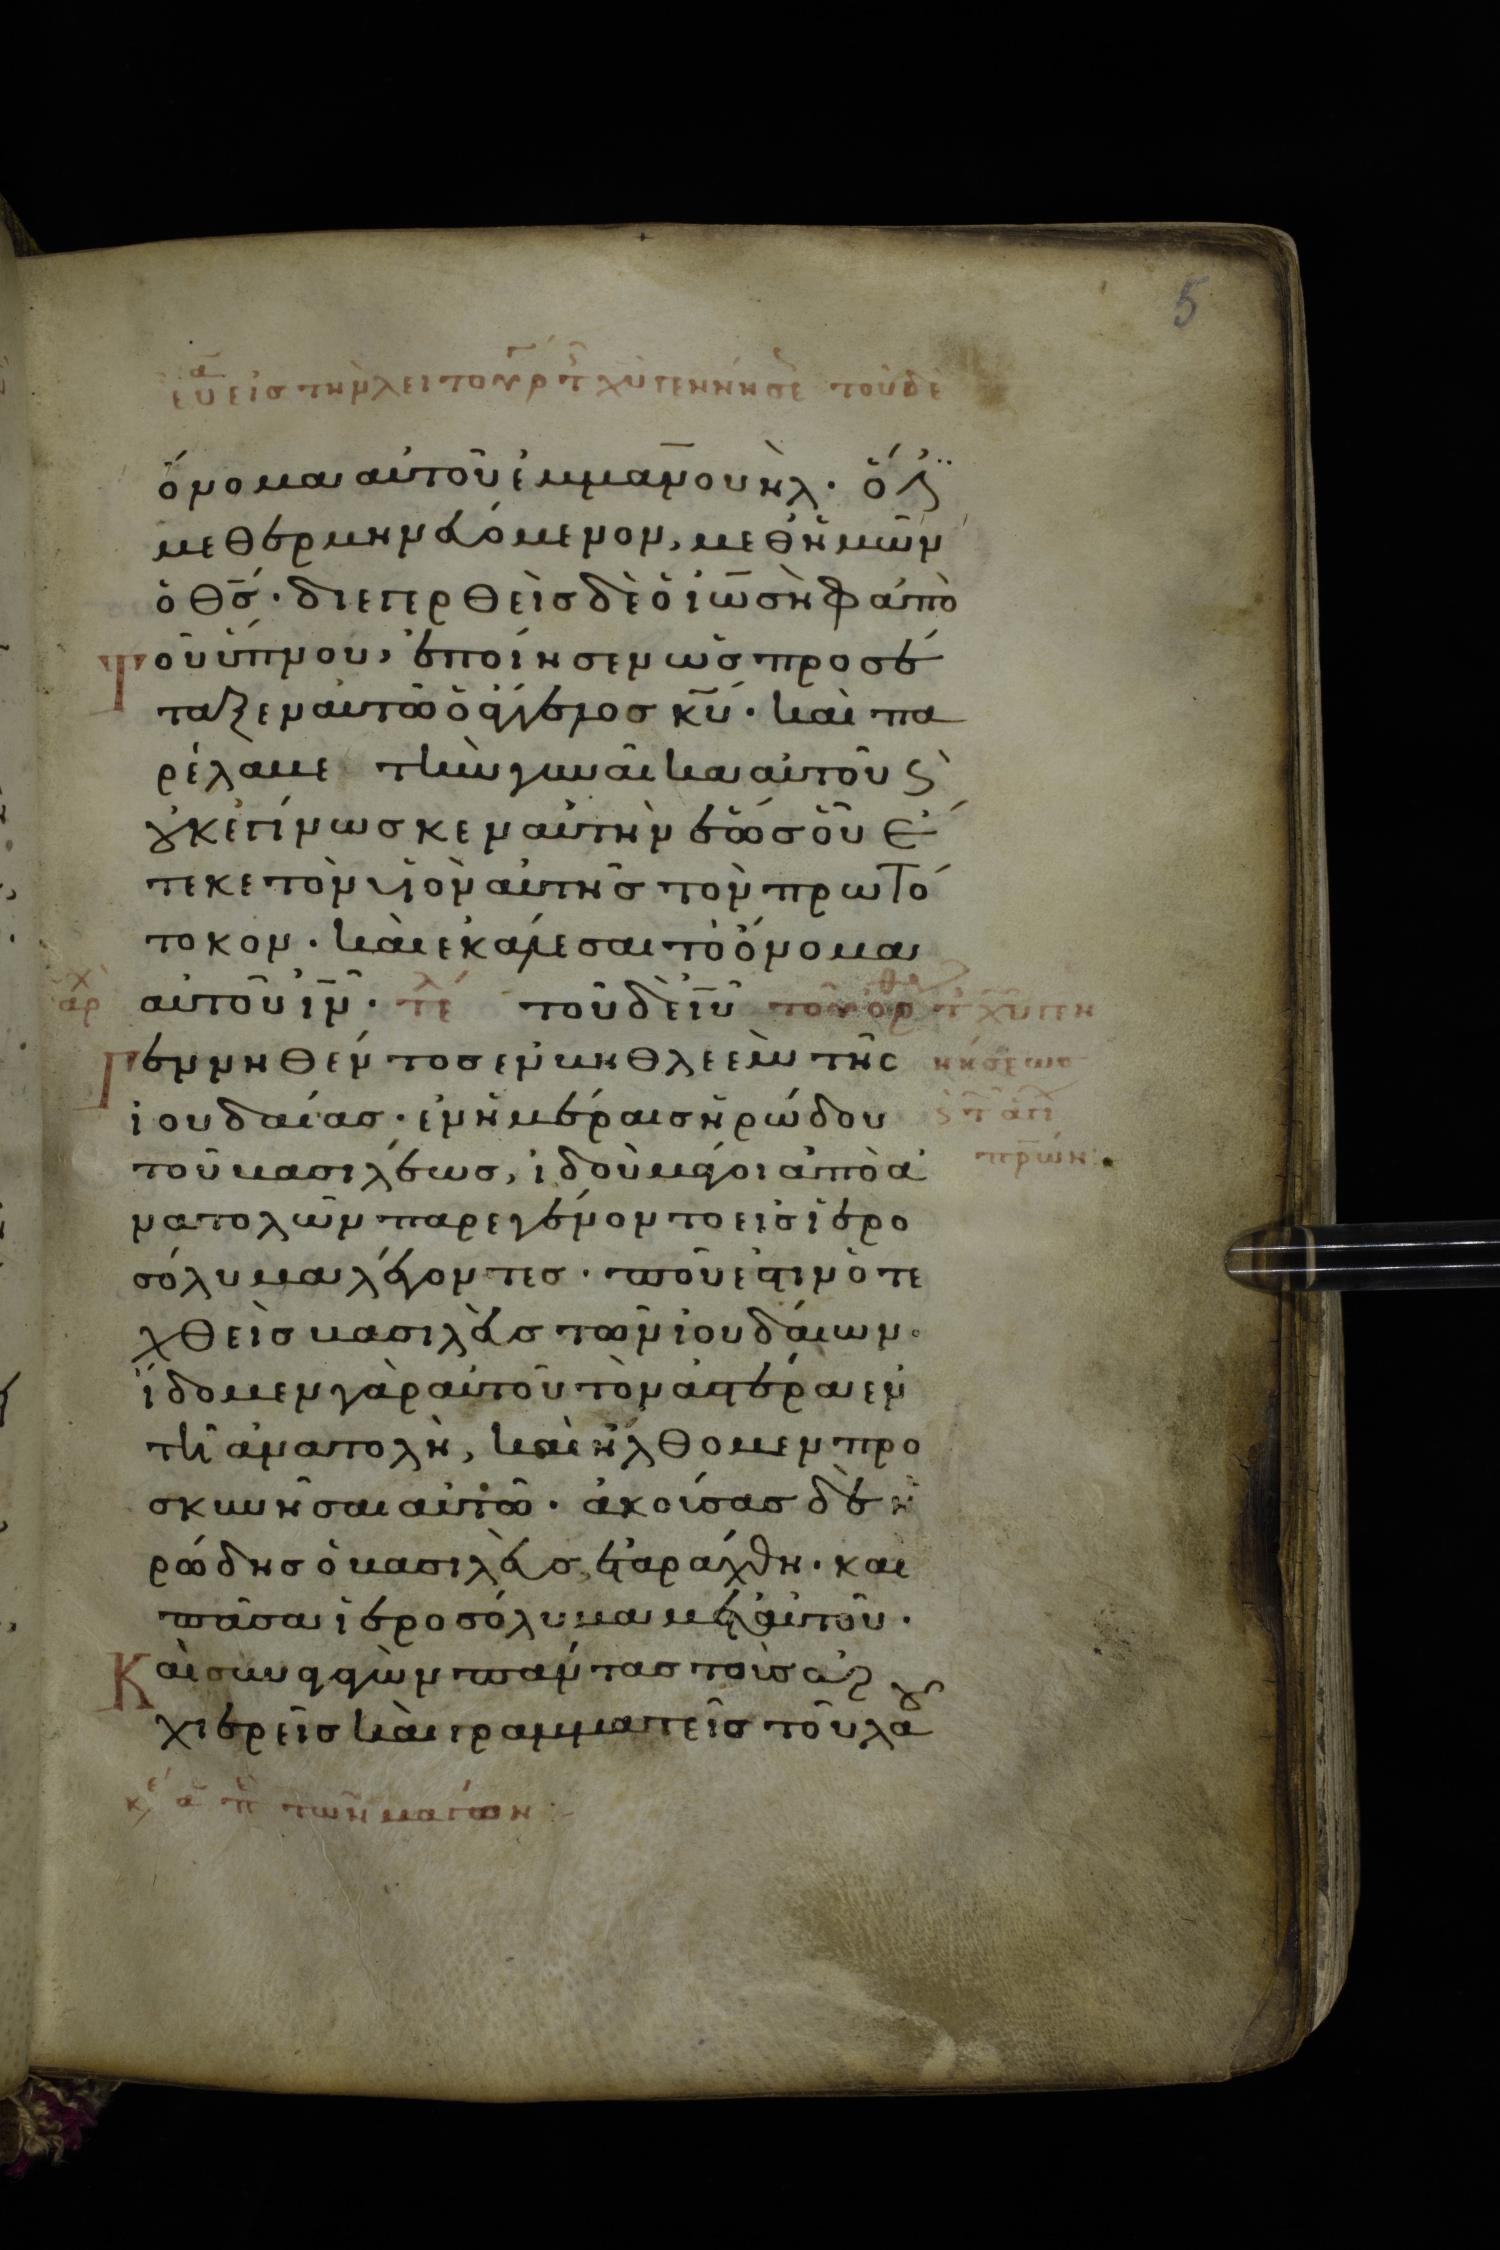 5
εὐα εἰς τὴν λειτουρ τ χυ γεννήσε τοῦ δὲ
ὄνομα αὐτοῦ ἐμμανουὴλ· ὅ ἐς
μεθερμηνευόμενον, μεθ ἡμῶν
ὁ θς· διεγερθεὶς δὲ ὁ ἰωσὴφ ἀπὸ
Τοῦ ὕπνου, ἐποίησεν ὡς προσέ
ταξεν αὐτῶ ὁ ἄγγελος κυ· καὶ πα
ρέλαβε τὴν γυναῖκα αὐτοῦ ϛ
οὐκ ἐγίνωσκεν αὐτὴν ἕως οὗ ἔ
τεκε τὸν υἱὸν αὐτῆς τὸν πρωτό
τοκον· καὶ ἐκάλεσε τὸ ὄνομα
ἀρχ αὐτοῦ ιν· τέλ τοῦ δὲ ιυ τοῦ ὄρθ τ χυ γεν
Γεννηθέντος ἐν βηθλεὲμ τῆς νήσεως
ἰουδαίας· ἐν ἡμέραις ἡρώδου
τοῦ βασιλέως, ἰδοὺ μάγοι ἀπὸ ἀ
νατολῶν παρεγένοντο εἰς ἱερο
σόλυμα λέγοντες· ποῦ ἐστιν ὁ τε
χθεὶς βασιλεὺς τῶν ἰουδαίων·
ἴδομεν γὰρ αὐτοῦ τὸν ἀστέρα ἐν
τῆ ἀνατολῆ, καὶ ἤλθομεν προ
σκυνῆσαι αὐτῶ· ἀκούσας δὲ ἡ
ρώδης ὁ βασιλεὺς, ἐταράχθη· και
πᾶσα ἱεροσόλυμα μετ αὐτοῦ·
Καὶ συναγαγὼν πάντας τοὺς ἀρ
χιερεῖς καὶ γραμματεῖς τοῦ λαοῦ